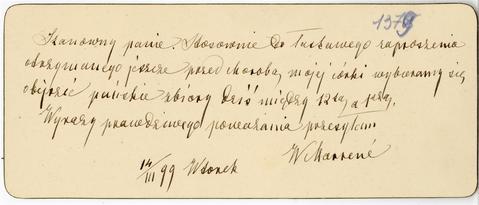 1379
Szanowny panie. Stosownie do łaskawego zaproszenia
otrzymanego jeszcze przed chorobą mojej córki wybieramy się
obejrzeć pańskie zbiory dziś między 12tą a 1szą.
Wyrazy prawdziwego poważania przesyłam
14/III 99 Wtorek W Marrené